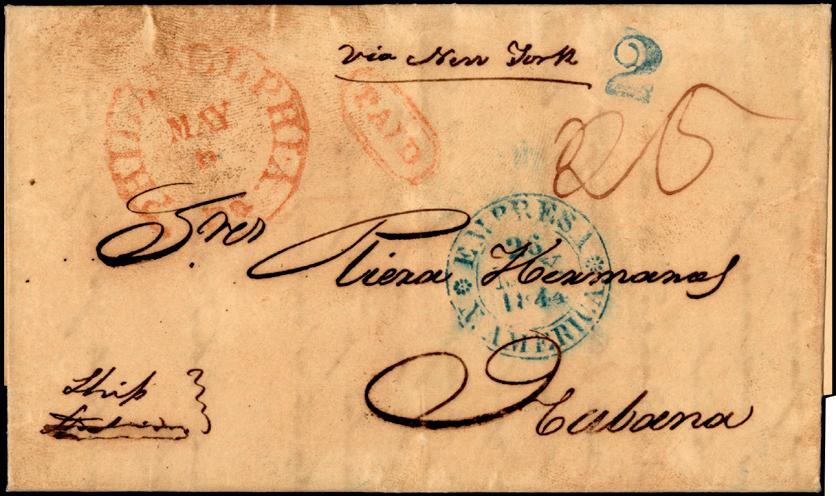 via New York
2
PHILADELPHIA Pa
MAY
PAID
25
EMPRESA
26
1844
N. AMERICA
Sres Riera Hermanos
Habana
Ship